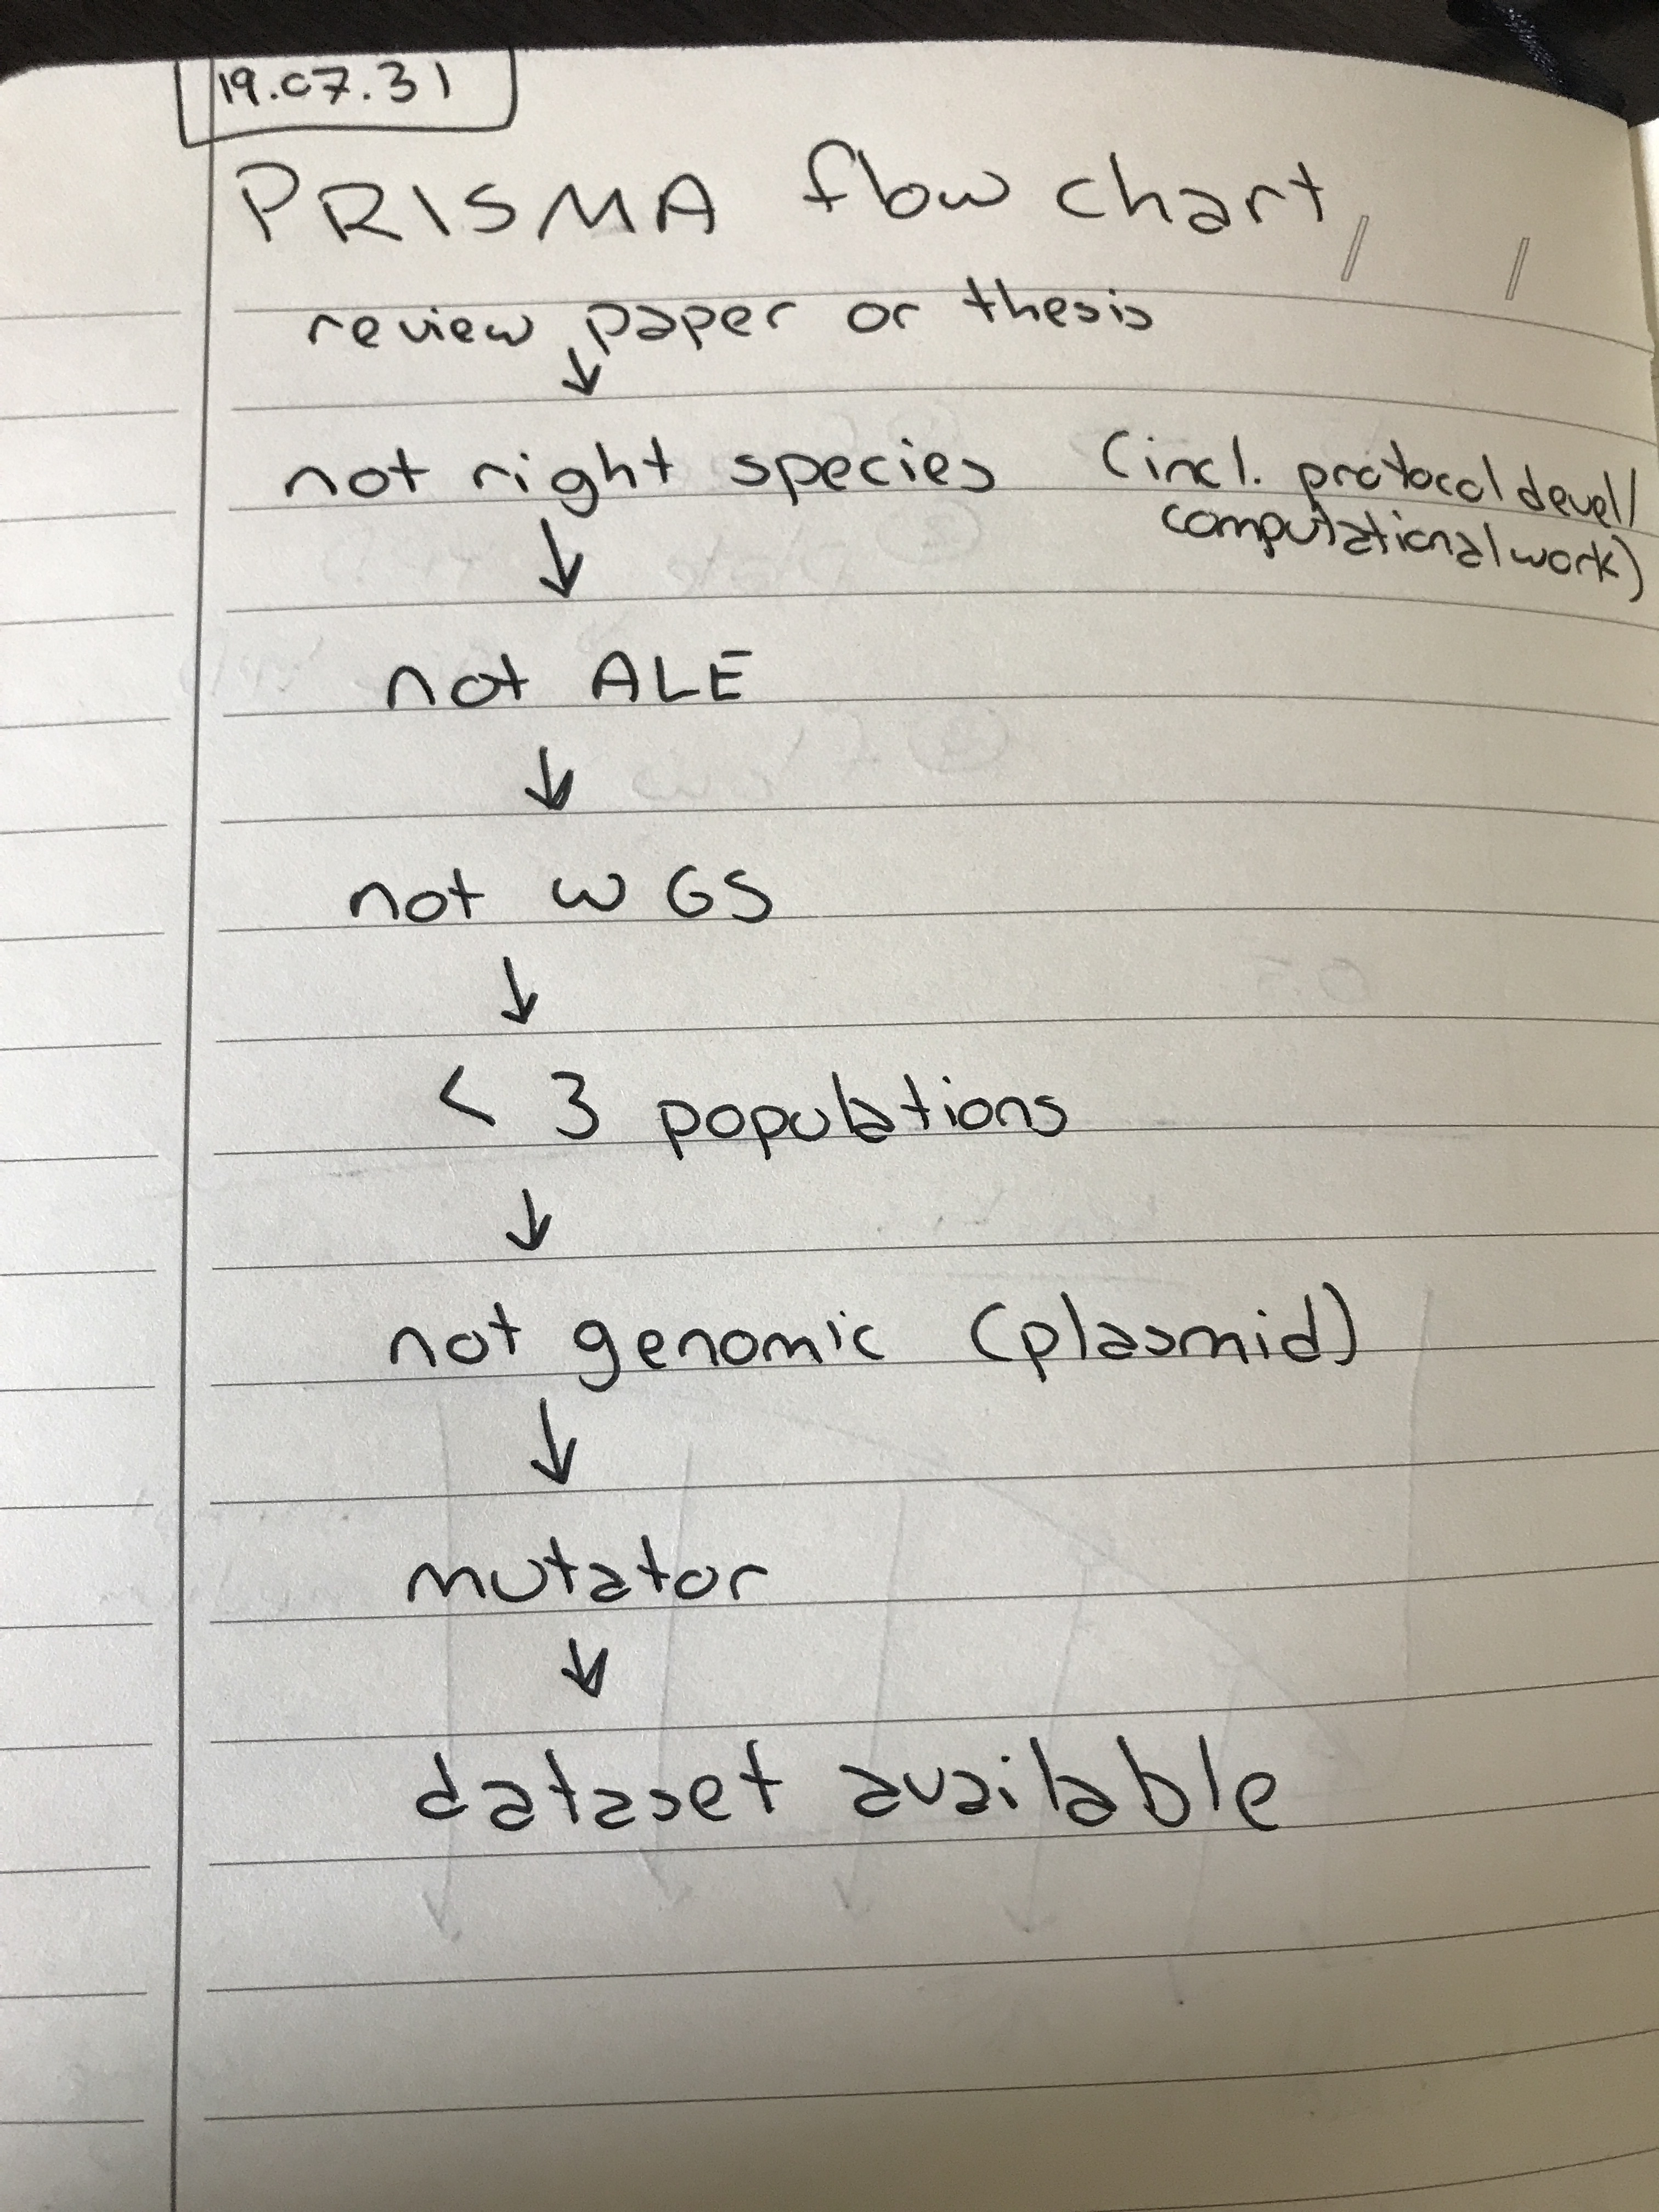 19.07.31
PRISMA flow chart
review paper or thesis
↓
not right species (incl. protocol devel/
computational work)
↓
not ALE
↓
not WGS
↓
< 3 populations
↓
not genomic (plasmid)
↓
mutator
↓
dataset available